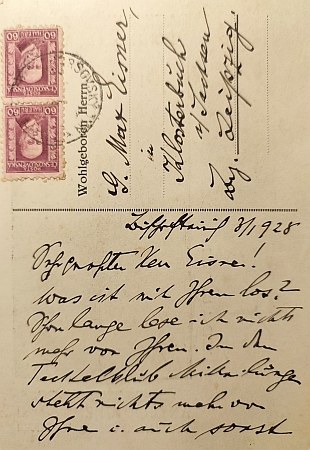 60 HALÉŘŮ 60
POŠTA ČESKOSLOVENSKÁ
60 HALÉŘŮ 60
POŠTA ČESKOSLOVENSKÁ
Wohlgeboren Herrn
G. Max Eisner,
in
Klosterbuch
i/ Sachsen
Bz. Leipzig.
8/1 928
Sehr geehrter Herr Eisner!
Was ist mit Ihnen los?
Schon lange lese ich nichts
mehr von Ihnen. In den
Teckelklub
steht nichts mehr von
Ihnen u. auch sonst